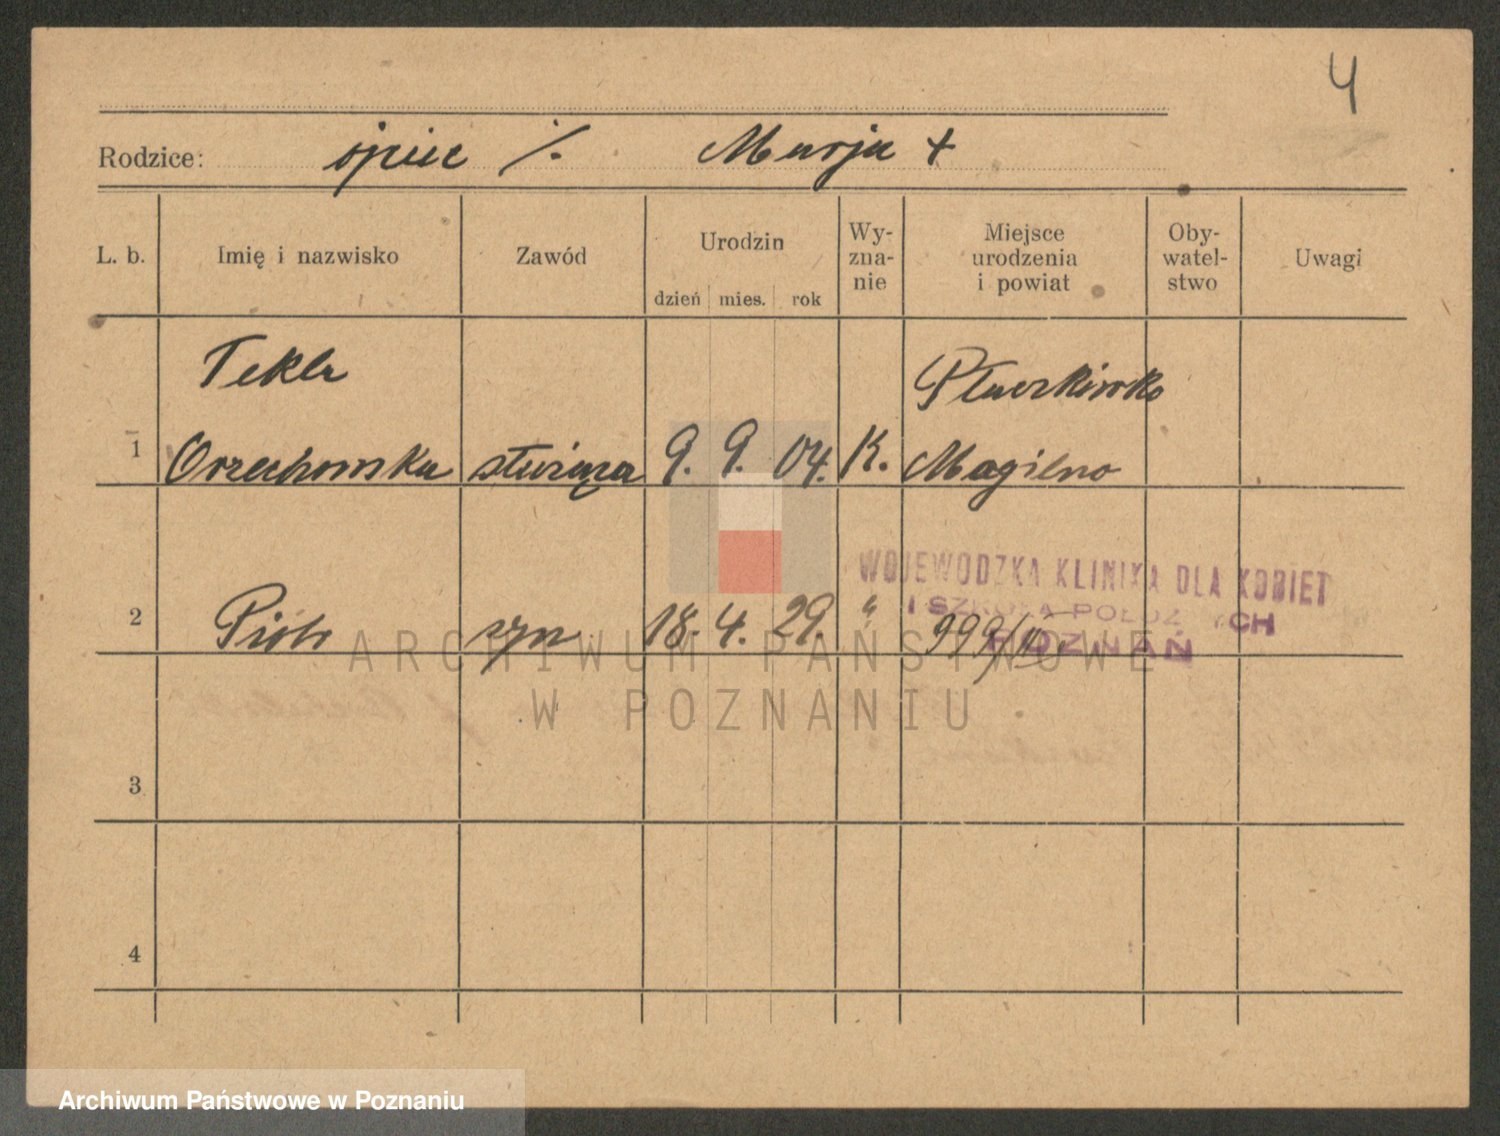 4
Rodzice: ojciec /. Marja +
L. b. Imię i nazwisko Zawód Urodzin dzień mies. rok Wy-zna-nie Miejsce urodzenia i powiat Oby-watel-stwo Uwagi
Tekla Płaczkówko
1 Orzechowska służąca 9. 9. 04. K. Mogilno
WOJEWÓDZKA KLINIKA DLA KOBIET
I SZKOŁA POŁOŻNYCH
POZNAŃ
2 Piotr syn 18. 4. 29. " 999/II
3
4
ARCHIWUM PAŃSTWOWE
W POZNANIU
Archiwum Państwowe w Poznaniu